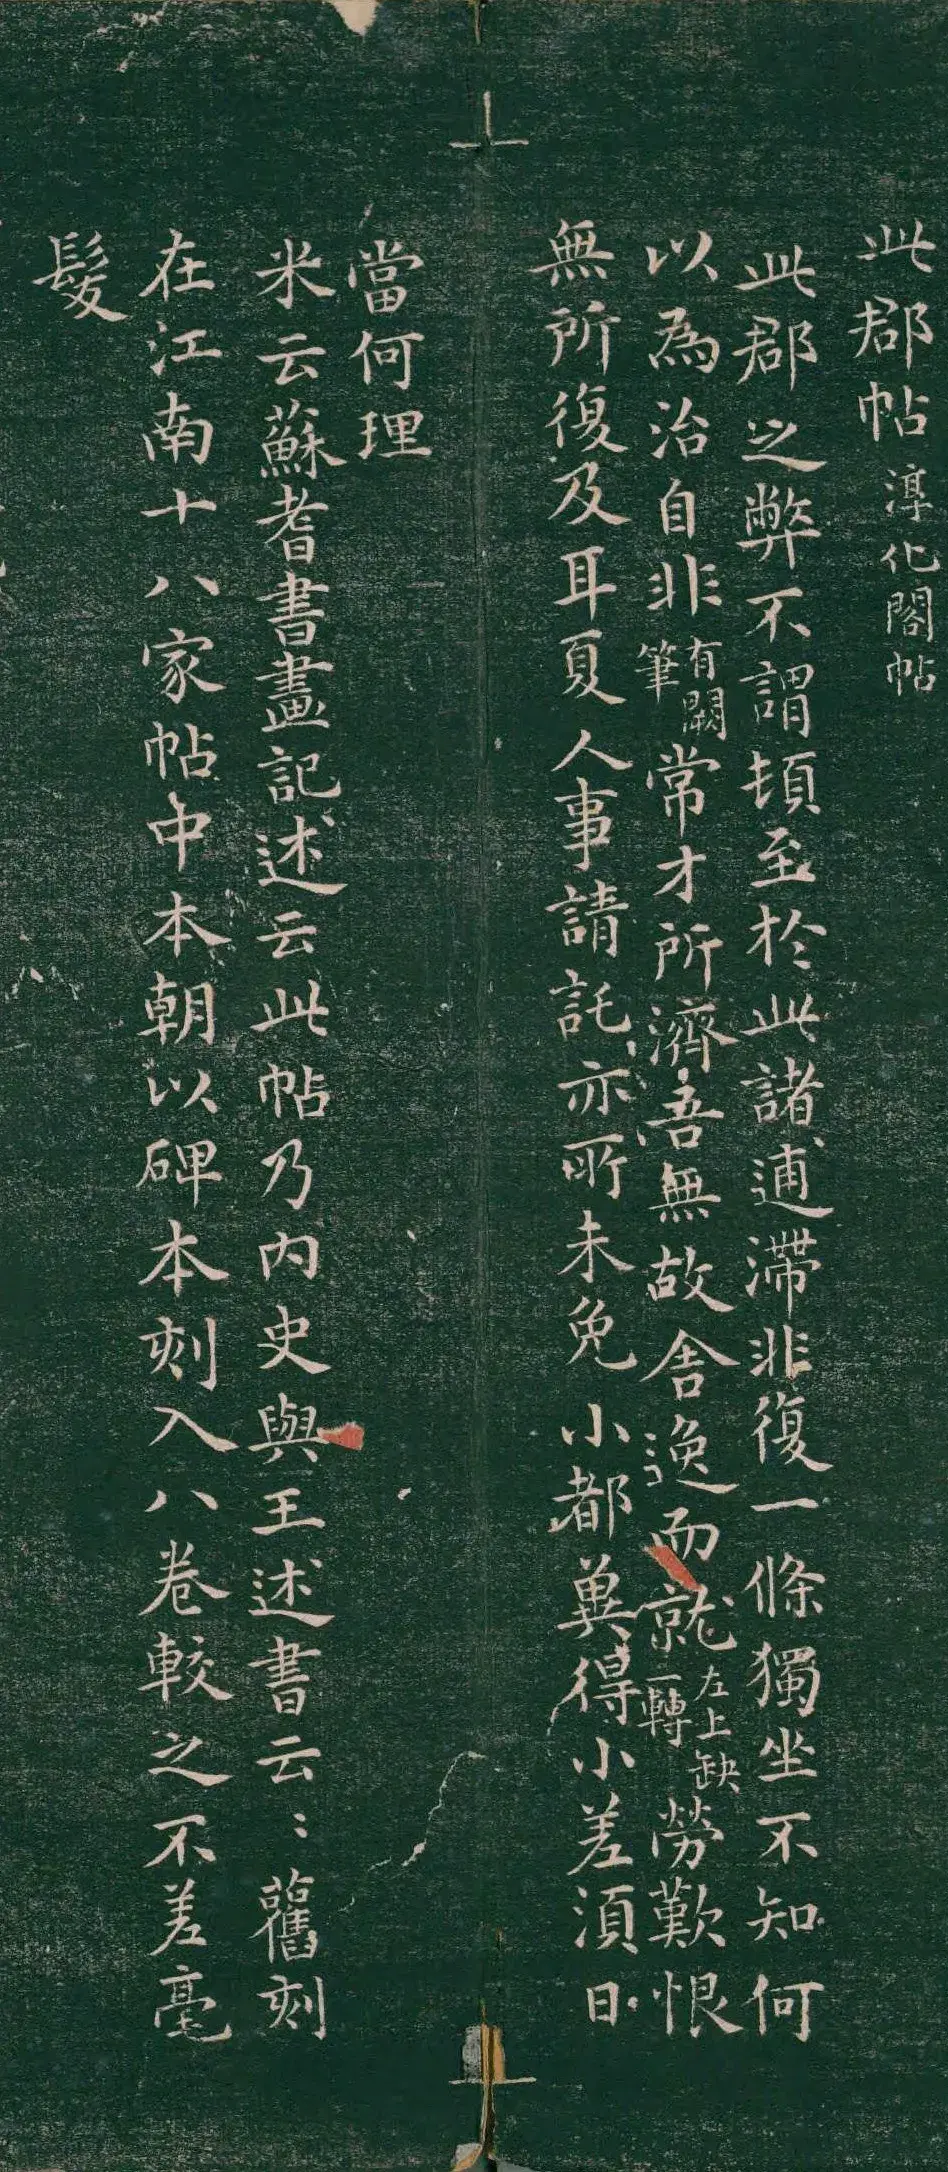 此郡帖 淳化閣帖
此郡之弊不謂頓至於此諸逋滯非復一條獨坐不知何
以為治自非有闕筆常才所濟吾無故舍逸而就左上缺一轉勞歎恨
無所復及耳夏人事請託亦所未免小都冀得小差須日
當何理
米云蘇耆書畫記述云此帖乃內史與王述書云〻舊刻
在江南十八家帖中本朝以碑本刻入八卷較之不差毫
髮